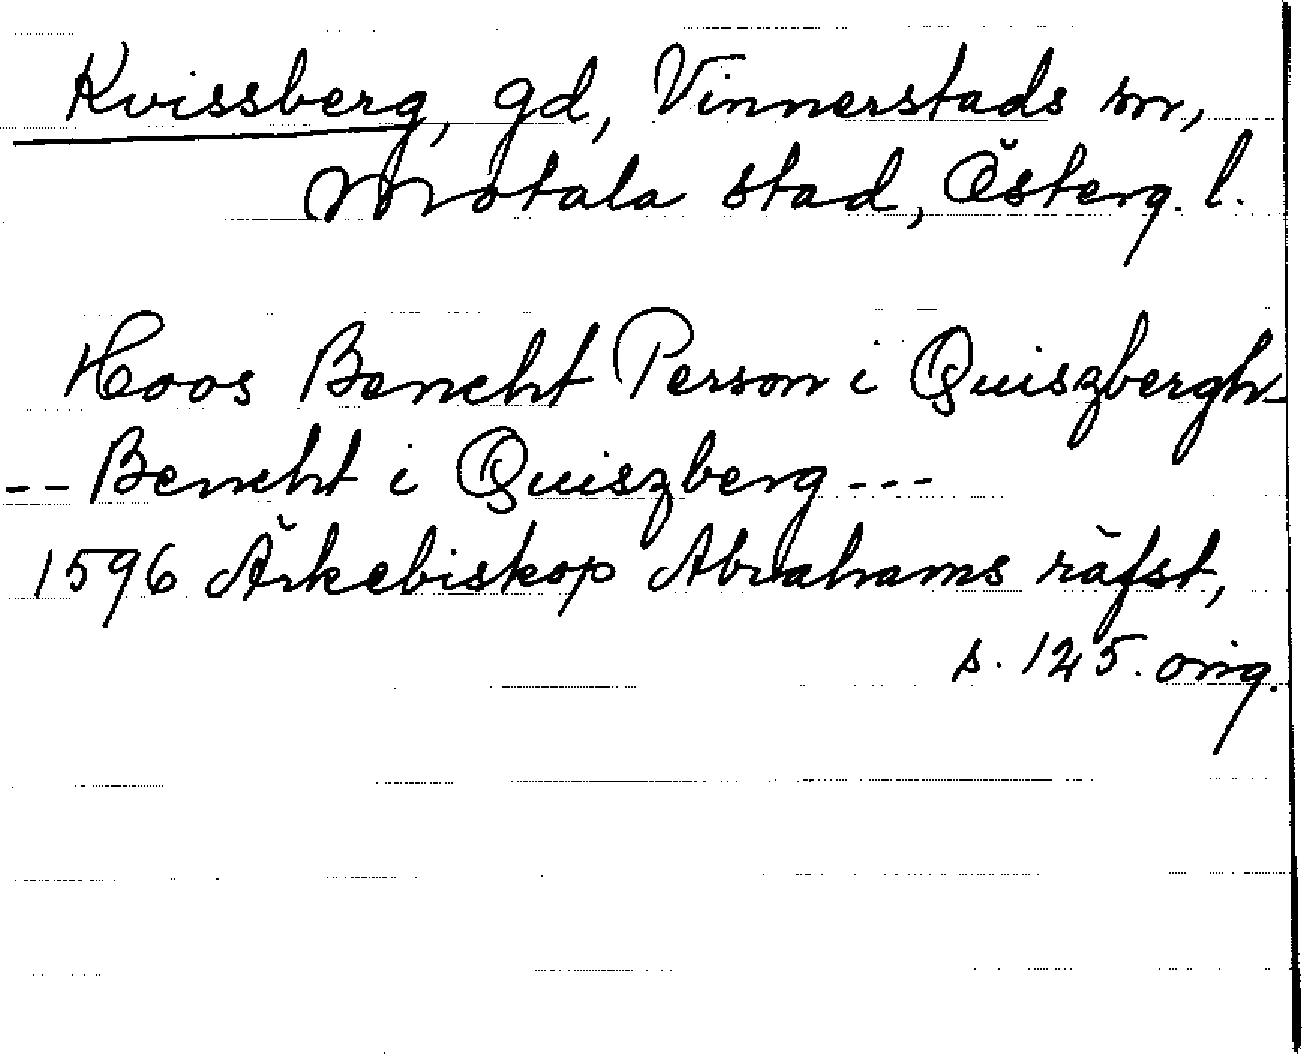 Kvissberg, gd, Vinnerstads sn,
Motala stad, Österg. l.
Hoos Bencht Person i Quiszbergh
-- Bencht i Quiszberg ---
1596 Ärkebiskop Abrahams räfst,
s. 125. orig.